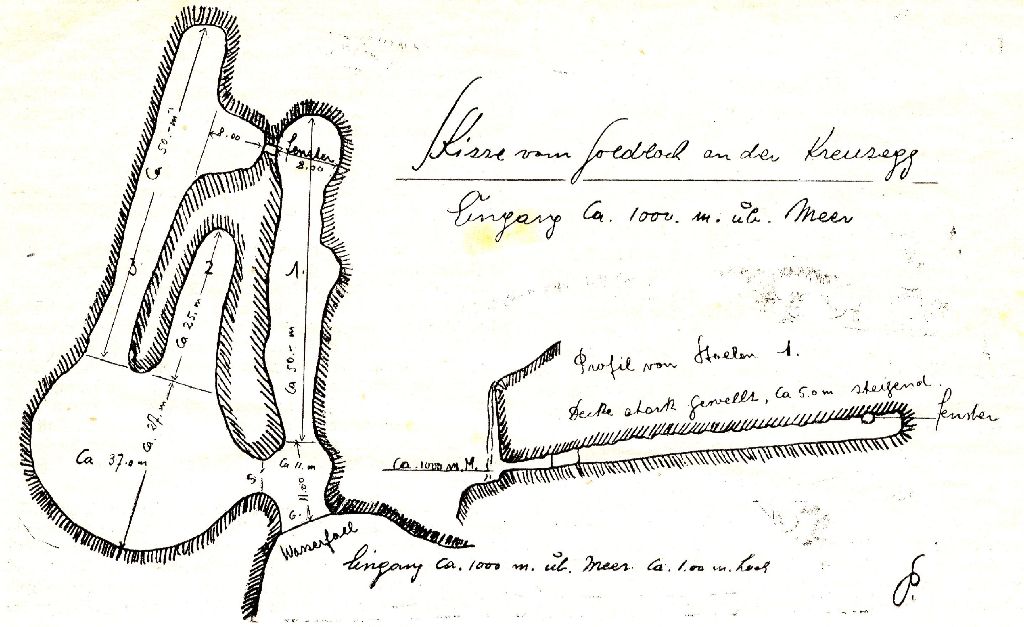 Skizze vom Goldloch an der Kreuzegg
Eingang Ca. 1000. m. üb. Meer
Ca 50.- m
8.00
Fenster
2.00
3
2
1.
Ca 25. m
Ca 50.- m
Ca. 27. m
Ca 37.0 m
Ca 11. m
5
11.00
Wasserfall
Eingang Ca. 1000 m. üb. Meer. Ca. 1.00 m. hoch
Profil von Stollen 1.
Decke stark gewellt, Ca 5.0m steigend.
Fenster
Ca. 1000 m. M.